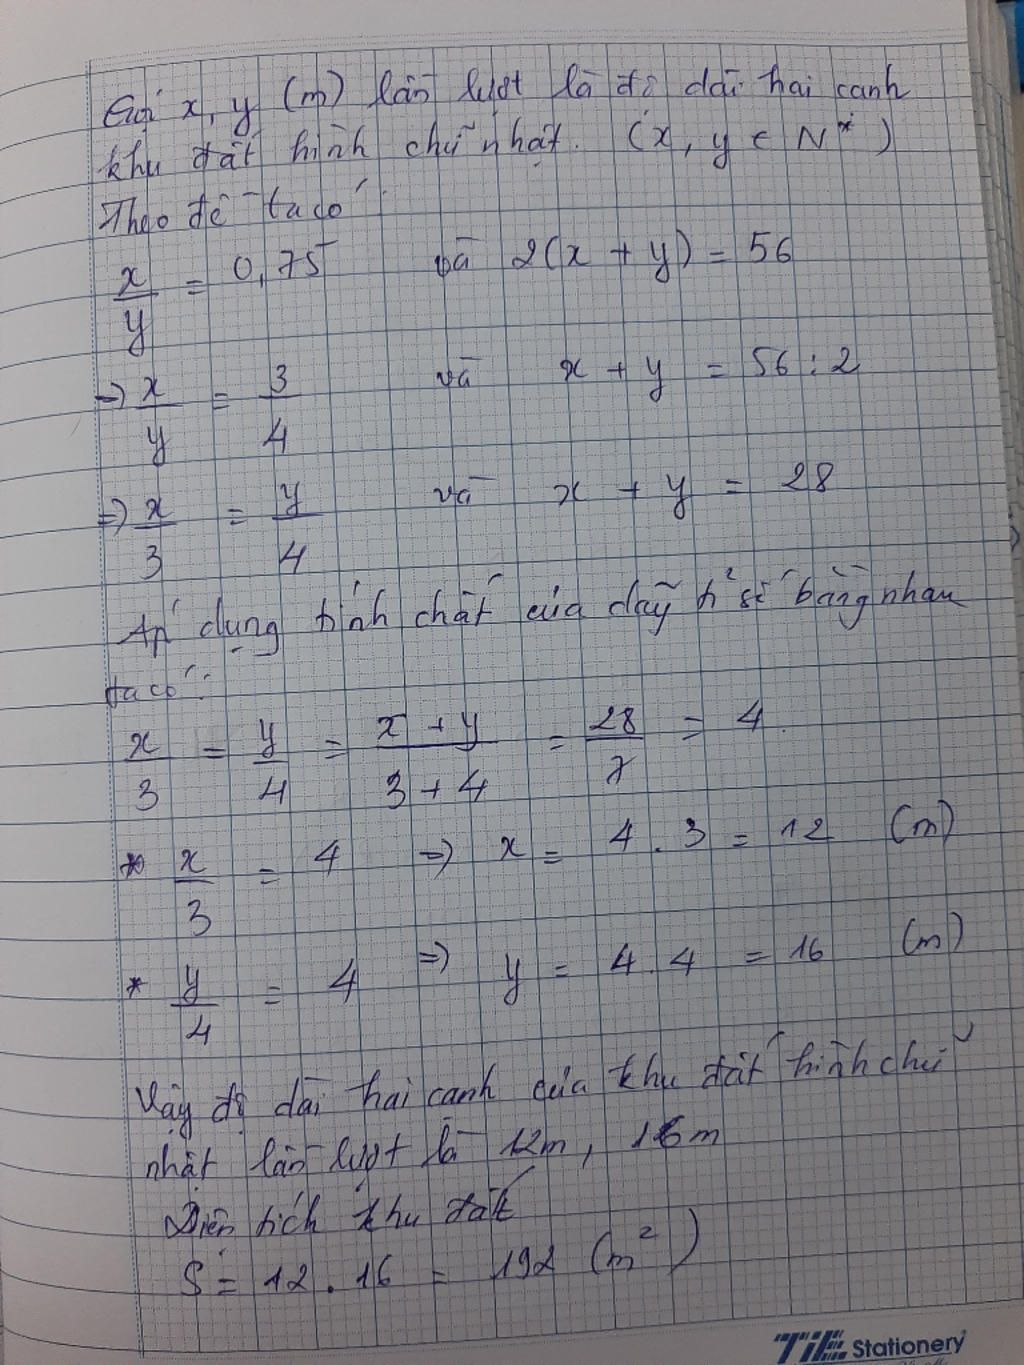 Gọi x, y (m) lần lượt là độ dài hai cạnh
khu đất hình chữ nhật. (x, y ∈ N*)
Theo đề ta có
x/y = 0,75 và 2(x + y) = 56
=> x/y = 3/4 và x + y = 56 : 2
=> x/3 = y/4 và x + y = 28
Áp dụng tính chất của dãy tỉ số bằng nhau
ta có:
x/3 = y/4 = x + y/3 + 4 = 28/7 = 4
* x/3 = 4 => x = 4 . 3 = 12 (m)
* y/4 = 4 => y = 4 . 4 = 16 (m)
Vậy độ dài hai cạnh của khu đất hình chữ
nhật lần lượt là 12m, 16m
Diện tích khu đất
S = 12 . 16 = 192 (m²)
TiE Stationery